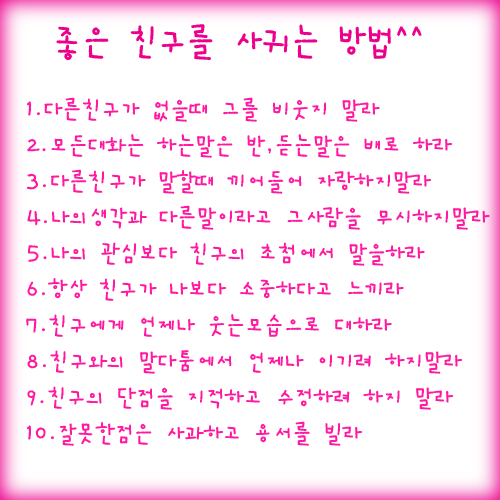 좋은 친구를 사귀는 방법^^
1.다른친구가 없을때 그를 비웃지 말라
2.모든대화는 하는말은 반,듣는말은 배로 하라
3.다른친구가 말할때 끼어들어 자랑하지말라
4.나의생각과 다른말이라고 그사람을 무시하지말라
5.나의 관심보다 친구의 초첨에서 말을하라
6.항상 친구가 나보다 소중하다고 느끼라
7.친구에게 언제나 웃는모습으로 대하라
8.친구와의 말다툼에서 언제나 이기려 하지말라
9.친구의 단점을 지적하고 수정하려 하지 말라
10.잘못한점은 사과하고 용서를 빌라